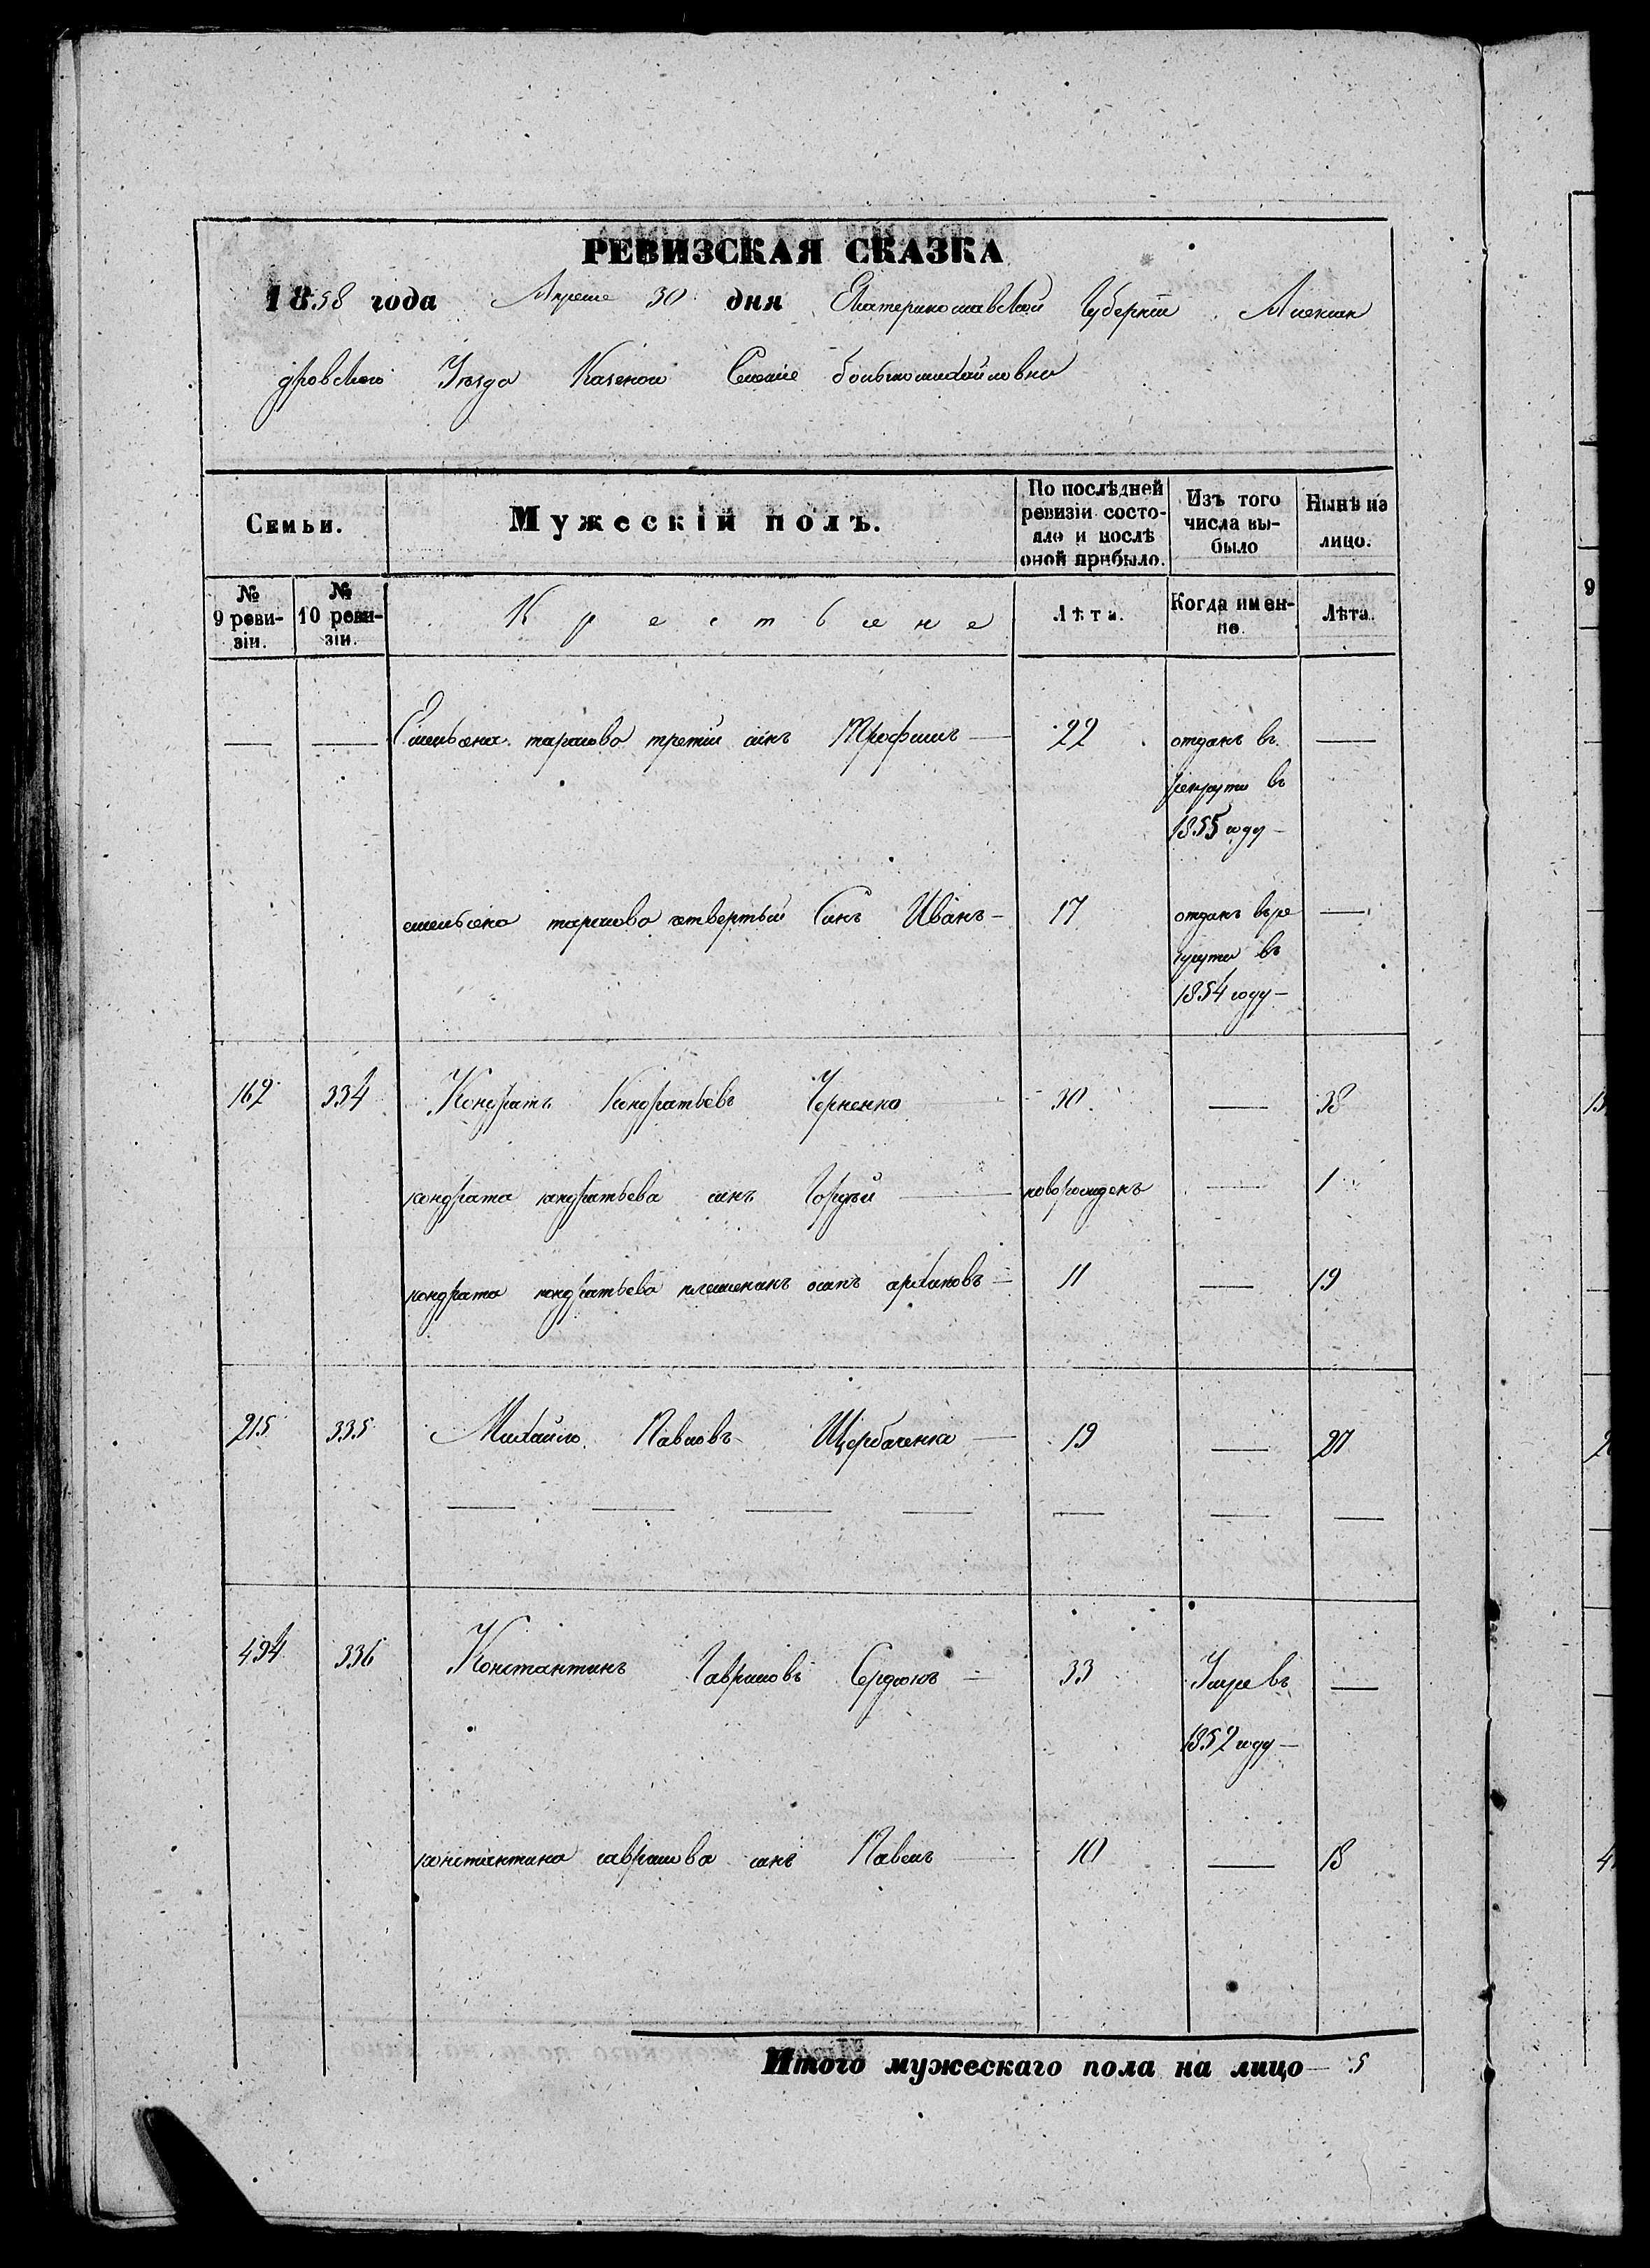 РЕВИЗСКАЯ СКАЗКА
1858 года Апреля 30 дня Екатеринославской Губернiи Алексан
дровского Уезда Казеном Селенiе большомихайловки
Семьи.
Мужескiй полъ.
По послѣдней ревизiи состояло и послѣ оной прибыло.
Изъ того числа выбыло
Нынѣ на лицо.
№ 9 ревизiи.
№ 10 ревизiи.
Крестьяне
Лѣта.
Когда именно.
Лѣта.
— — Емельяна тарасова третiй сынъ Трофимъ — 22 отданъ въ —
рекруты въ
1855 году —
емельяна тарасова четвертый Сынъ Иванъ — 17 отданъ въ ре —
круты въ
1854 году —
162 334 Кондратъ Кондратьевъ Черненко 30 — 38
кондрата кондратьева сынъ Гордѣй — новорожденъ — 1
кондрата кондратьева племенникъ осипъ архиповъ — 11 — 19
215 335 Михайло Павловъ Щербаченко — 19 — 27
— — — — — — —
494 336 Константинъ Гавриловъ Сердюкъ — 33 Умре въ —
1852 году —
константина гаврилова сынъ Павелъ — 10 — 18
Итого мужескаго пола на лицо — 5